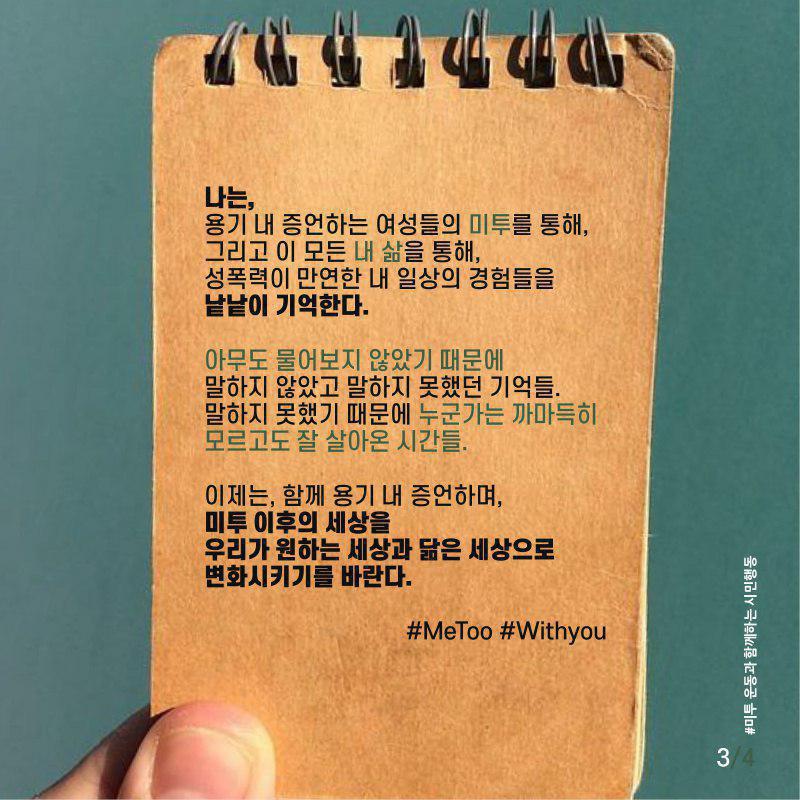 나는,
용기 내 증언하는 여성들의 미투를 통해,
그리고 이 모든 내 삶을 통해,
성폭력이 만연한 내 일상의 경험들을
낱낱이 기억한다.
아무도 물어보지 않았기 때문에
말하지 않았고 말하지 못했던 기억들.
말하지 못했기 때문에 누군가는 까마득히
모르고도 잘 살아온 시간들.
이제는, 함께 용기 내 증언하며,
미투 이후의 세상을
우리가 원하는 세상과 닮은 세상으로
변화시키기를 바란다.
#MeToo #Withyou
#미투 운동과 함께하는 시민행동
3/4